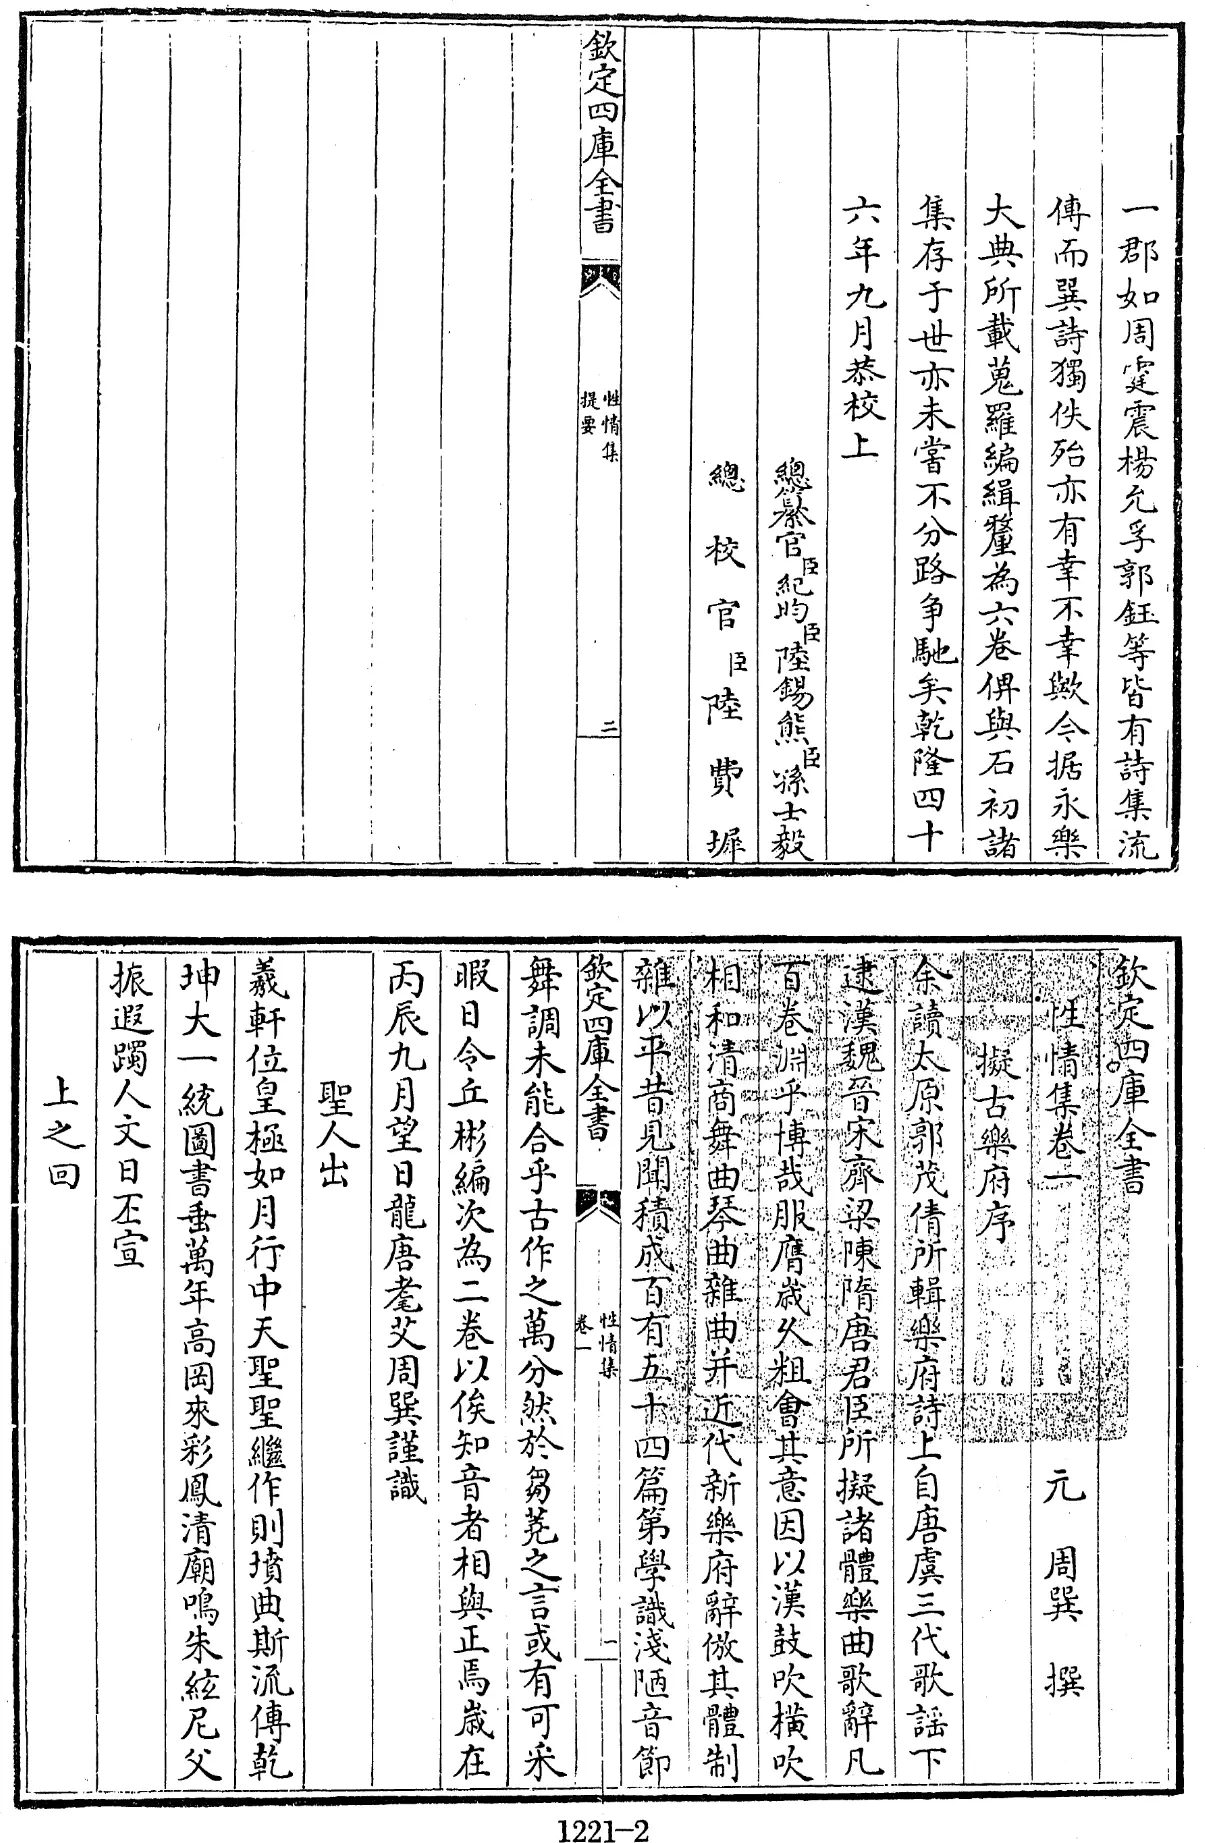 一郡如周霆震楊允孚郭鈺等皆有詩集流
傳而巽詩獨佚殆亦有幸不幸歟今据永樂
大典所載蒐羅編緝釐為六卷俾與石初諸
集存于世亦未嘗不分路争馳矣乾隆四十
六年九月恭校上
總纂官臣紀昀臣陸錫熊臣孫士毅
總校官臣陸費墀
欽定四庫全書
性情集
提要
二
欽定四庫全書
性情集卷一
元 周巽 撰
擬古樂府序
余讀太原郭茂倩所輯樂府詩上自唐虞三代歌謡下
逮漢魏晉宋齊梁陳隋唐君臣所擬諸體樂曲歌辭凡
百卷淵乎博哉服膺歲久粗會其意因以漢鼓吹橫吹
相和清商舞曲琴曲雜曲并近代新樂府辭倣其體制
雜以平昔見聞積成百有五十四篇第學識淺陋音節
欽定四庫全書
性情集
卷一
一
舞調未能合乎古作之萬分然於芻蕘之言或有可采
暇日令丘彬編次為二卷以俟知音者相與正焉歲在
丙辰九月望日龍唐耄艾周巽謹識
聖人出
羲軒位皇極如月行中天聖聖繼作則墳典斯流傳乾
坤大一統圖書垂萬年高岡來彩鳳清廟鳴朱絃尼父
振遐躅人文日丕宣
上之回
1221-2